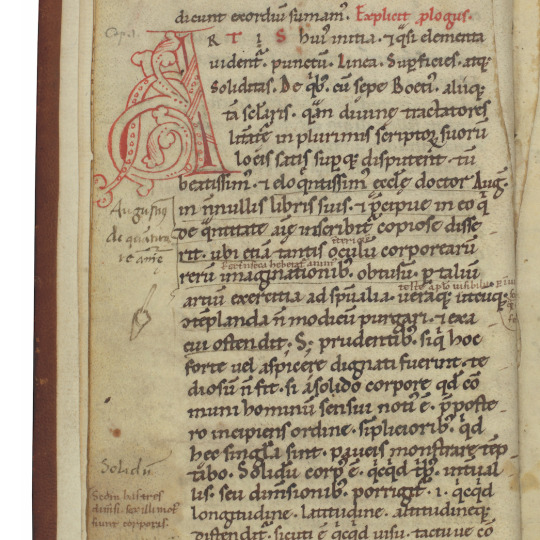 dicunt exordiū sumam᷒. Explicit plogus.
Cap. 1.
A R T I S huiꝰ initia ⁊ q̇si elementa
uident᷒. punctū. Linea. Supficies. atq;
Soliditas. De qͥbꝫ. cū sepe Boetiꝰ. aliiq;
tā sclaris. qͣm diuine tractatores
lit̄atē in plurimis scriptoꝝ suoꝝ
locis satis supq; disputent. tū
beatissimꝰ. ⁊ eloq̄ntissimꝰ eccl̄ę doctor Aug.
in n̄nullis libris suis. ⁊ p̄cipue in eo q̇
de q̄ntitate aīę inscribit᷒ copiose disse
rit. ubi etiā tantis oculū corporearū
rerū imaginationibꝫ. obtusū. p taliū
artiū exercitia ad sp̄ualia. ueraq; utcūq;
cōtēplanda n̄ modicū purgari. ⁊ exa
cui ostendit. S; prudentibꝫ. siq̇ hoc
forte uel aspicere dignati fuerint. te
diosū n̄ fit. si a solido corpore qd cō
muni hominū sensui notū ē. p̄poste
ro incipiens ordine. siplicioribꝫ. q̇d
hęc singl̄a sint. paucis monstrare tēp
tabo. Solidū corpꝰ ē. q̇cqd tͥpl. int̄ual
lis. seu dim̄sionibꝫ. porrigit᷒. i. q̇cqd
longitudine. latitudine. altitudineq;
distendit᷒. sicuti ē q̇cqd uisu. tactuue cō
Augustinus
de quantita
te anime
Solidū